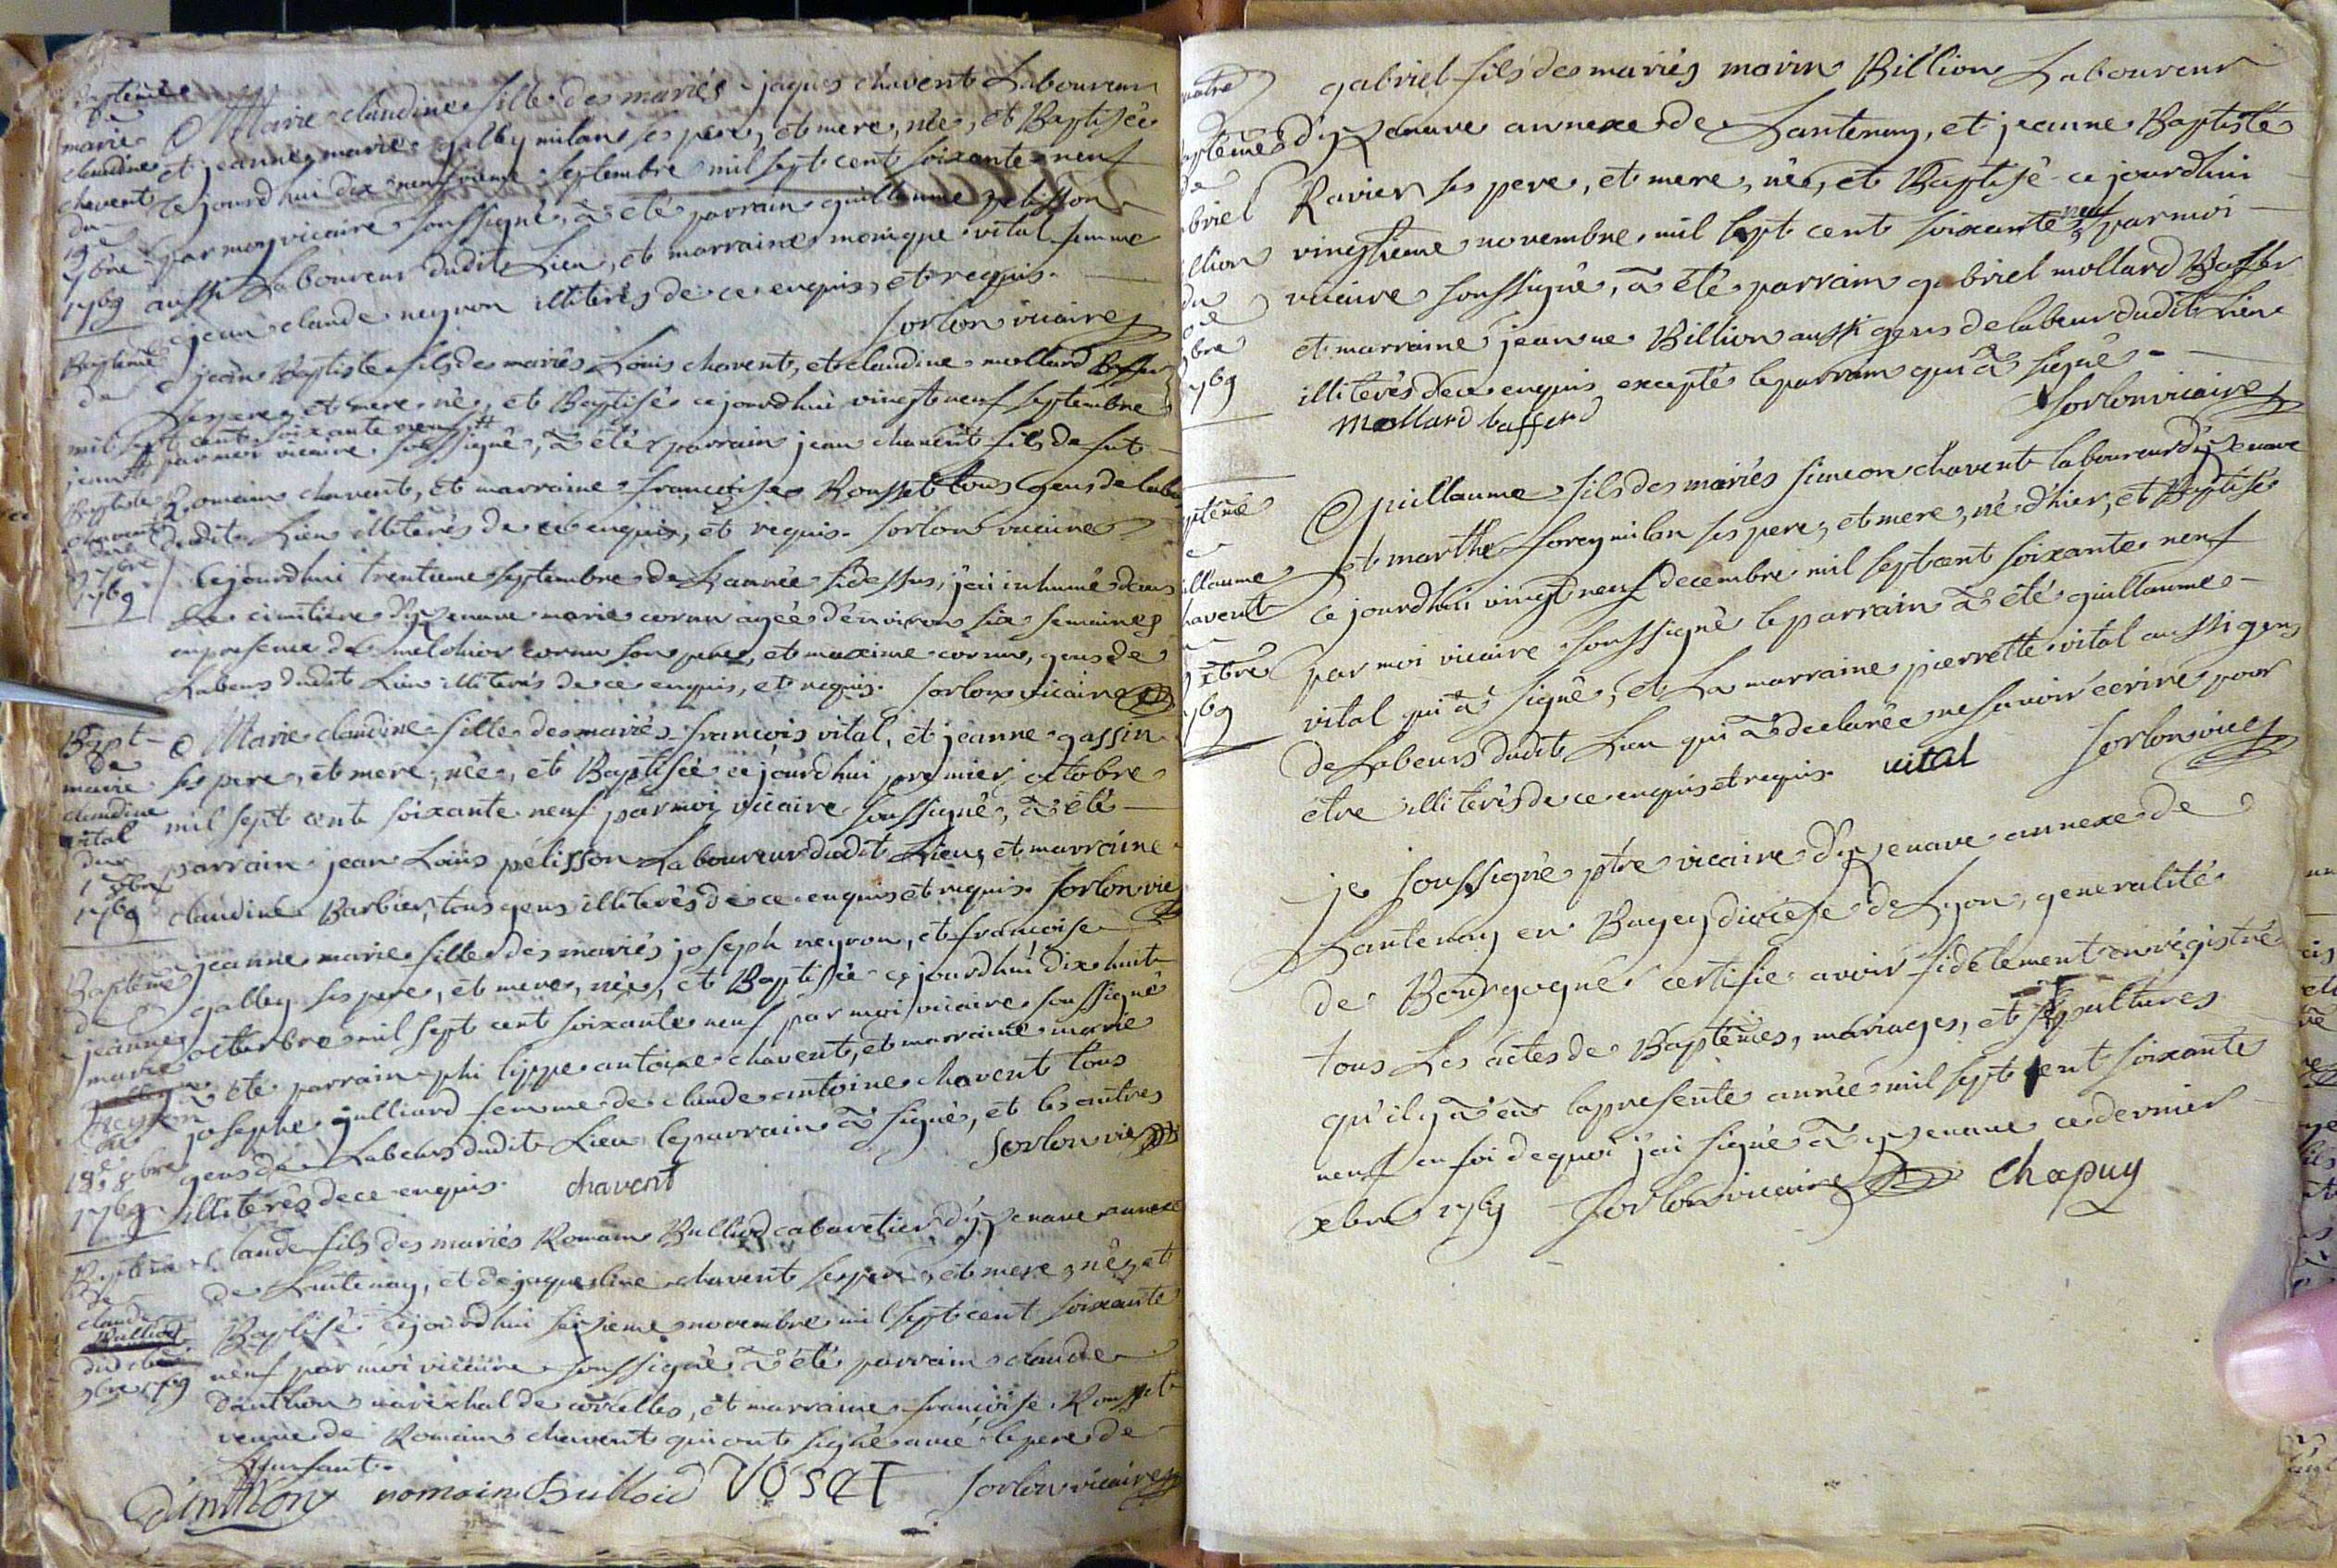 Baptême
de
marie
claudine
chavent
du
19e
7bre
1769
Marie claudine fille des mariés jaques chavent Laboureur
et jeanne marie galley milan ses pere, et mere, née, et Baptisée
cejourdhui dix neuvieme septembre mil sept cent soixante neuf
par moy vicaire soussigné, à été parrain guillaume pelisson
aussi Laboureur dudit Lieu, et marraine monique vital femme
jean claude neyron illiterés de ce enquis, et requis.
sorlon vicaire
Baptême
de
jean
Baptiste
chavent
7bre
1769
jean Baptiste fils des mariés Louis chavent, et claudine mollard Baffer
ses pere, et mere né, et Baptisé cejourdhui vingt neuf septembre
mil sept cent soixante neuf
par moi vicaire soussigné, à été parrain jean chavent fils de fut
Romain chavent, et marraine françoise Rousset tous gens de labeu
dudit Lieu illiterés de ce enquis, et requis. sorlon vicaire
Cejourdhui trentieme septembre de L'année sidessus, j'ai inhumé dans
Le cimitiere d'yzenave marie cornu agée d'environ six semaines
en presence de melchior cornu son pere, et maxime cornu, gens de
Labeur dudit Lieu illiterés de ce enquis, et requis. sorlon vicaire
Bapt
de
marie
claudine
vital
du
1er 8bre
1769
Marie claudine fille des mariés françois vital, et jeanne gassin
ses pere, et mere, née, et Baptisée cejourdhui premier octobre
mil sept cent soixante neuf par moi vicaire soussigné, à été
parrain jean Louis pélisson Laboureur dudit Lieu, et marraine
claudine Barbier, tous gens illiterés de ce enquis et requis. sorlon vic
Baptême
de
jeanne
marie
neyron
du
18e 8bre
1769
jeanne marie fille des mariés joseph neyron, et françoise
galley ses pere, et mere, née, et Baptisée cejourdhui dix huit
octobre mil sept cent soixante neuf par moi vicaire soussigné
à été parrain philippe antoine chavent, et marraine marie
josephe julliard femme de claude antoine chavent tous
gens de Labeur dudit Lieu le parrain à signé, et les autres
illiterés de ce enquis. chavent sorlon vic
Baptême
de
claude
Bulliod
9bre 1769
claude fils des mariés Romain Bulliod cabaretier d'yzenave annexe
de Lantenay, et de jaqueline chavent ses pere, et mere, né, et
Baptisé cejourdhui seizieme novembre mil sept cent soixante
neuf par moi vicaire soussigné à été parrain claude
danthon maréchal de corcelles, et marraine françoise Rousset
veuve de Romain chavent qui ont signé avec le pere de
L'enfant.
danthon romain Bulliod VOSET sorlon vicaire
gabriel fils des mariés marin Billion Laboureur
d'yzenave annexe de Lantenay, et jeanne Baptiste
Ravier ses pere, et mere, né, et Baptisé cejourdhui
vingtieme novembre mil sept cent soixante neuf par moi
vicaire soussigné, à été parrain gabriel mollard Baffer
et marraine jeanne Billion aussi gens de labeur dudit Lieu
illiterés de ce enquis excepté le parrain qui à signé.
Mollard bafferd sorlon vicaire
Guillaume fils des mariés simeon chavent laboureur d'yzenave
et marthe sorey milan ses pere, et mere, né d'hier, et Baptisé
ce jourdhui vingt neuf decembre mil sept cent soixante neuf
par moi vicaire soussigné le parrain à été guillaume
vital qui à signé, et La marraine pierrette vital aussi gens
de Labeur dudit Lieu qui à declarée ne savoir ecrire pour
être illiterés de ce enquis et requis. vital sorlon vic
je soussigné ptre vicaire d'yzenave annexe de
Lantenay en Bugey diocese de Lyon, generalité
de Bourgogne certifie avoir fidélement enrégistré
tous Les actes de Baptêmes, mariages, et sepultures
qu'il y à eu la presente année mil sept cent soixante
neuf en foi de quoi j'ai signé à yzenave ce dernier
xbre 1769 sorlon vicaire chapuy